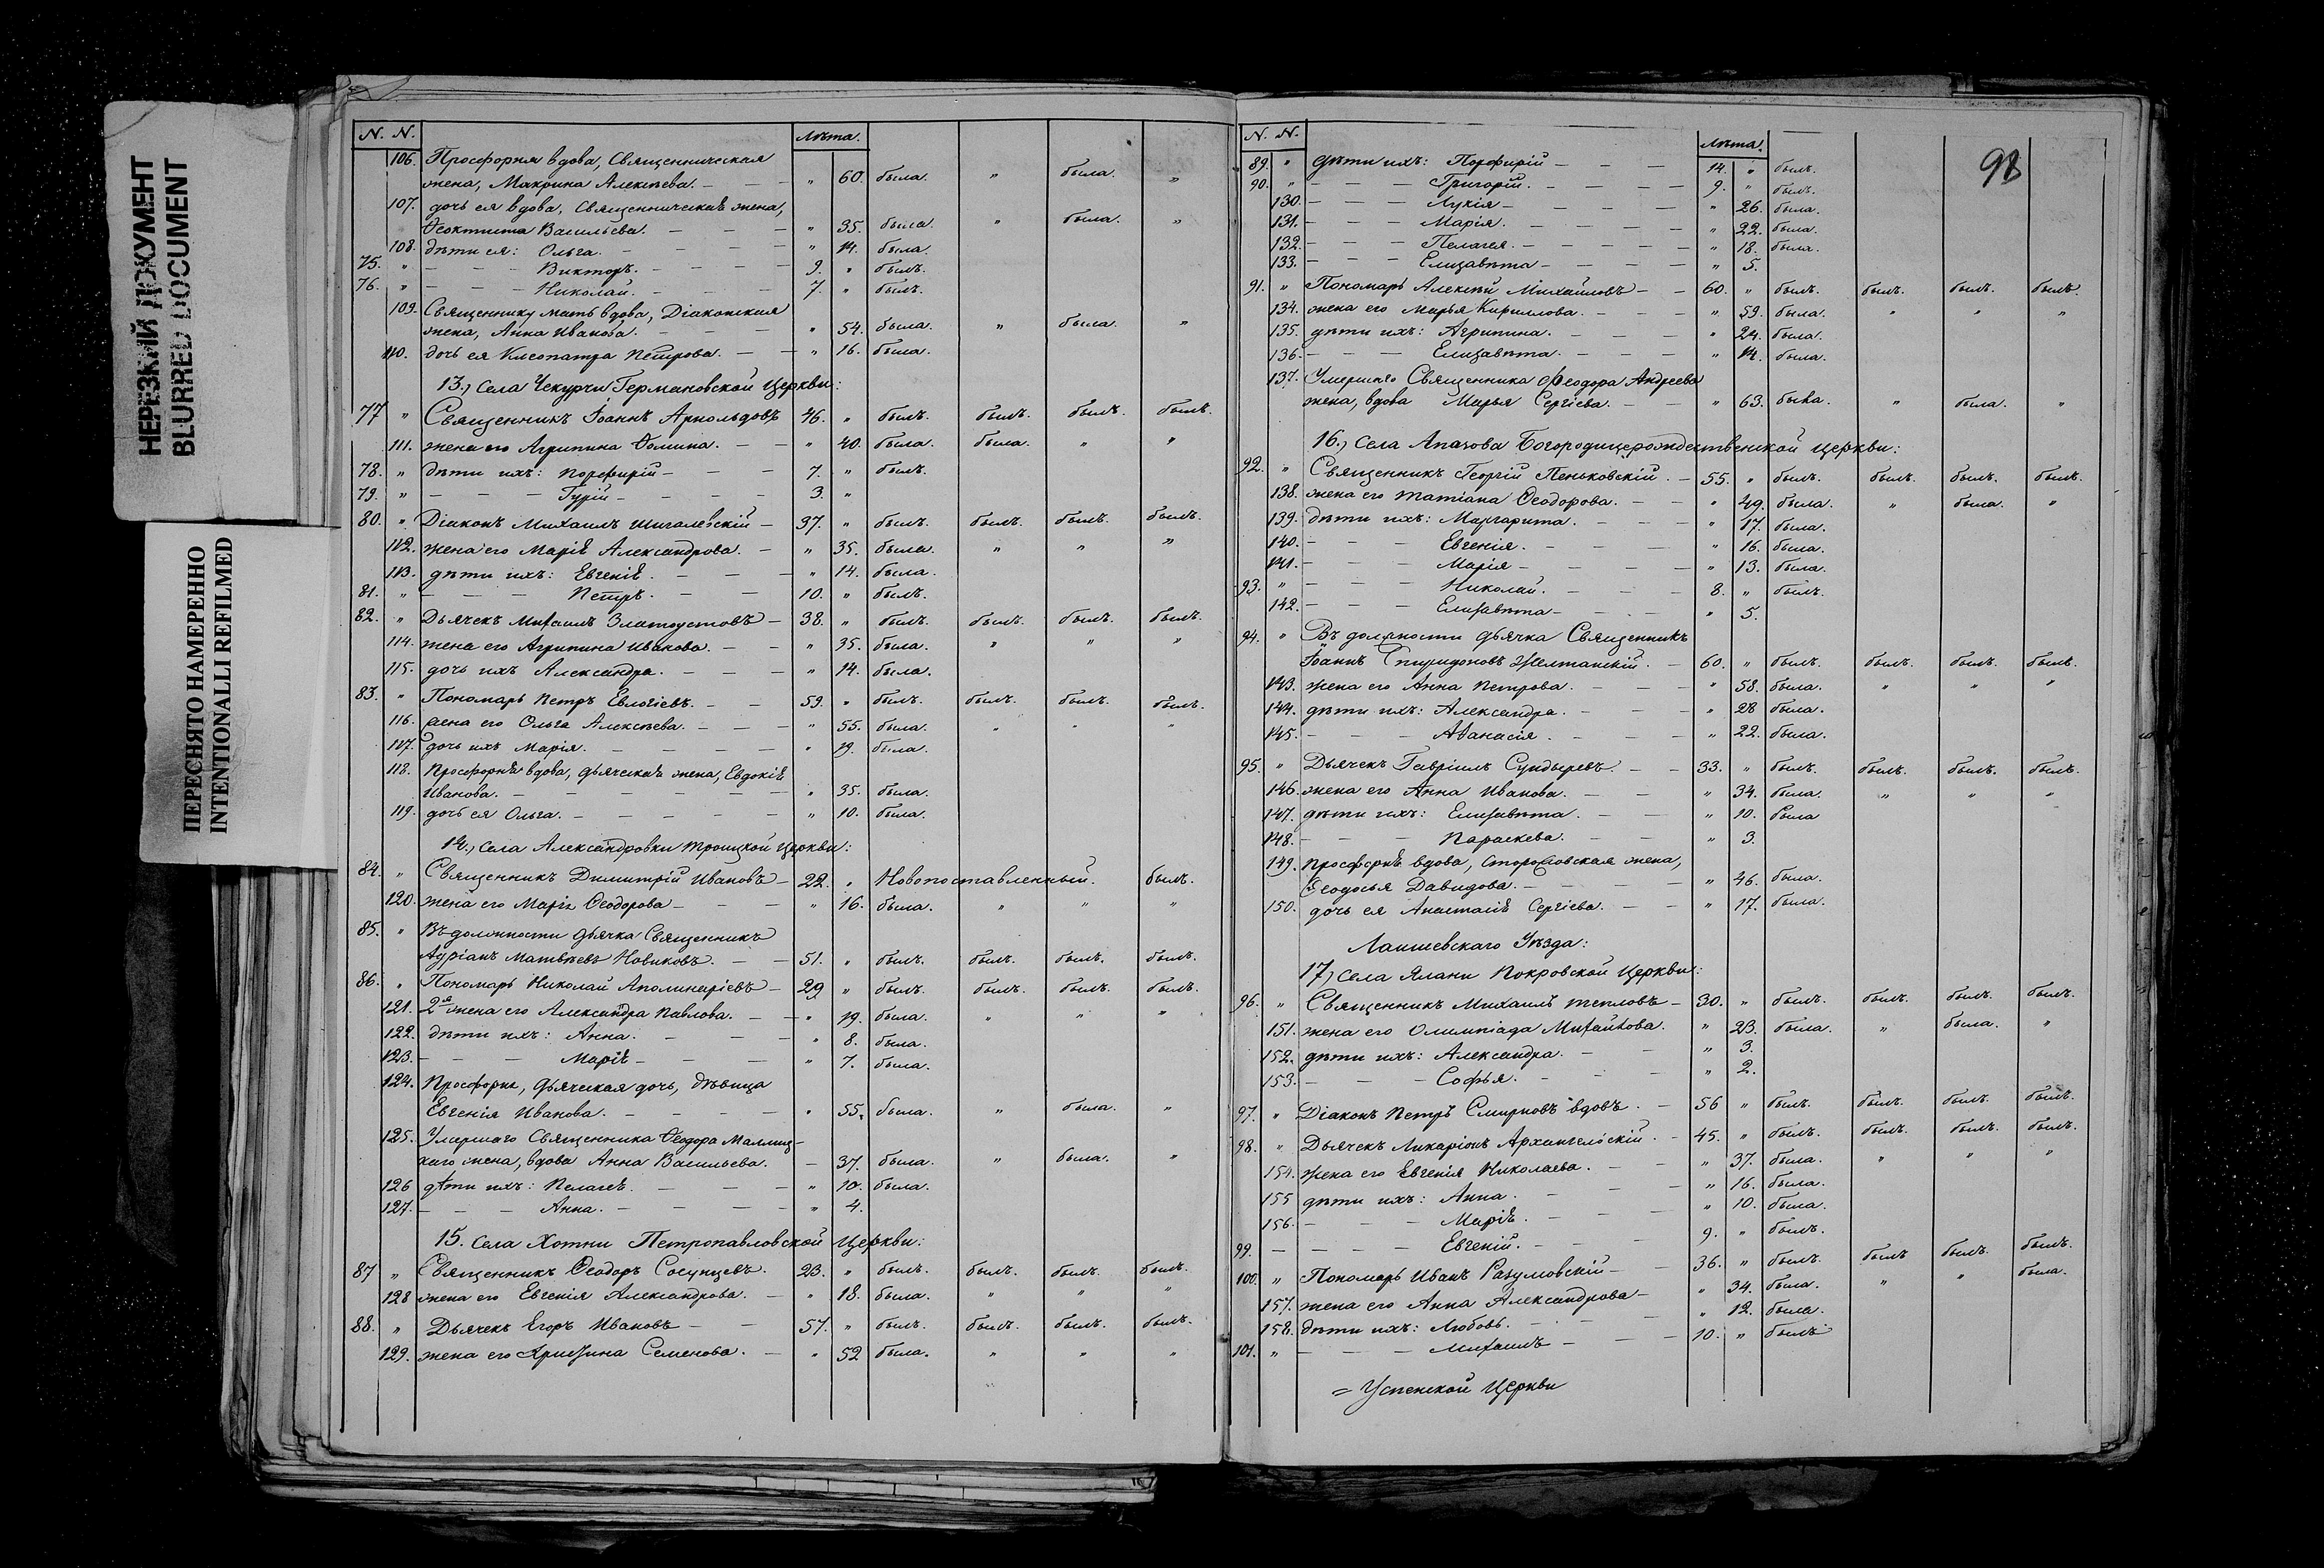 НЕРЕЗКИЙ ДОКУМЕНТ
BLURRED DOCUMENT
ПЕРЕСНЯТО НАМЕРЕННО
INTENTIONALLI REFILMED
N. N. Лѣта.
106. Просфорня вдова, Священническая
жена, Макрина Алексѣева. — — " 60. была. " была. "
107. дочь ея вдова, Священническая жена,
Ѳеоктиста Васильева. — — — " 35. была. " была. "
108. дѣти ея: Ольга. — — — — " 14. была.
75. " — — — Викторъ. — — — — 9. " былъ.
76. " — — — Николай. — — — 7. " былъ.
109. Священнику мать вдова, Діаконская
жена, Анна Иванова. — — — " 54. была. " была. "
110. дочь ея Клеопатра Петрова. — — " 16. была.
13.) Села Чекурчи Германовской Церкви:
77 " Священникъ Іоаннъ Арнольдовъ 46. " былъ. былъ. былъ. былъ.
111. жена его Агрипина Ѳомина. — — " 40. была. была. " "
78. " дѣти ихъ: Порфирій — — — 7. " былъ.
79. " — — — Гурій — — — — 3. "
80. " Діаконъ Михаилъ Шигалевскій — 37. " былъ. былъ. былъ. былъ.
112. жена его Марія Александрова. — " 35. была. " " "
113. дѣти ихъ: Евгенія. — — — " 14. была.
81. " — — — Петръ. — — — 10. " былъ.
82. " Дьячекъ Михаилъ Златоустовъ — 38. " былъ. былъ. былъ. былъ.
114. жена его Агрипина Иванова. — — " 35. была. " " "
115. дочь ихъ Александра. — — — " 14. была.
83. " Пономарь Петръ Евлогіевъ. — — 59. " былъ. былъ. былъ. былъ.
116. жена его Ольга Алексѣева. — — — " 55. была. " " "
117. дочь ихъ Марія. — — — — — " 19. была.
118. Просфорня вдова, дьяческая жена, Евдокія
Иванова. — — — — — — — " 35. была.
119. дочь ея Ольга. — — — — — " 10. была.
14.) Села Александровки Троицкой Церкви:
84. " Священникъ Димитрій Ивановъ — 22. " Новопоставленный. былъ.
120. жена его Марія Ѳеодорова — — — " 16. была. " " "
85. " Въ должности дьячка Священникъ
Адріанъ Матвѣевъ Новиковъ. — — 51. " былъ. былъ. былъ. былъ.
86. " Пономарь Николай Аполинаріевъ — 29 " былъ. былъ. былъ. былъ.
121. 2я жена его Александра Павлова. — — " 19. была. " " "
122. дѣти ихъ: Анна. — — — — " 8. была.
123. — — — Марія — — — — " 7. была.
124. Просфорня, дьяческая дочь, дѣвица
Евгенія Иванова. — — — — " 55. была. " была. "
125. Умершаго Священника Ѳеодора Малмиц-
каго жена, вдова Анна Васильева. — 37. была. " была. "
126 дѣти ихъ: Пелагея. — — — — " 10. была.
127. — — — Анна. — — — — " 4.
15. Села Хотни Петропавловской Церкви:
87 " Священникъ Ѳеодоръ Сосунцевъ. 23. " былъ. былъ. былъ. былъ.
128 жена его Евгенія Александрова. — " 18. была. " " "
88. " Дьячекъ Егоръ Ивановъ — — 57. " былъ. былъ. былъ. былъ.
129. жена его Семенова. — " 52 была. " " "
N. N. Лѣта. 98
89. " дѣти ихъ: Порфирій — — — 14. " былъ.
90. " — — — Григорій. — — — — 9. " былъ.
130. — — — Лукія — — — — " 26. была.
131. — — — Марія. — — — — " 22. была.
132. — — — Пелагея. — — — — " 18. была.
133. — — — Елизавѣта — — — — " 5.
91. " Пономарь Алексѣй Михайловъ — — 60. " былъ. былъ. былъ. былъ.
134. жена его Марья Кириллова. — — — " 59. была. " " "
135. дѣти ихъ: Агрипина. — — — " 24. была.
136. — — — Елизавѣта. — — — " 14. была.
137. Умершаго Священника Ѳеодора Андреева
жена, вдова Марья Сергіева. — — " 63. была. " была. "
16.) Села Апазова Богородицерождественской Церкви:
92. " Священникъ Георгій Пеньковскій. — 55. " былъ. былъ. былъ. былъ.
138. жена его Татіана Ѳеодорова. — — " 49. была. " была. "
139. дѣти ихъ: Маргарита. — — — " 17. была.
140. — — — Евгенія. — — — " 16. была.
141. — — — Марія — — — — " 13. была.
93. " — — — Николай. — — — 8. " былъ.
142. — — — Елизавѣта — — — " 5.
94. " Въ должности дьячка Священникъ
Іоаннъ Спиридоновъ Желтанскій. — 60. " былъ. былъ. былъ. былъ.
143. жена его Анна Петрова. — — — " 58. была. " " "
144. дѣти ихъ: Александра. — — — " 28 была.
145. — — — Аѳанасія. — — — " 22. была.
95. " Дьячекъ Гавріилъ Сундыревъ. — — 33. " былъ. былъ. былъ. былъ.
146. жена его Анна Иванова. — — " 34. была. " " "
147. дѣти ихъ: Елизавѣта. — — " 10. была
148. — — — Параскева. — — " 3.
149. Просфорня вдова, жена,
Ѳеодосья Давидова. — — — — " 46. была.
150. дочь ея Анастасія Сергіева. — — " 17. была.
Лаишевскаго Уѣзда:
17.) Села Алани Покровской Церкви:
96. " Священникъ Михаилъ Тепловъ — 30. " былъ. былъ. былъ. былъ.
151. жена его Олимпіада Михайлова. " 23. была. " была. "
152. дѣти ихъ: Александра. — — " 3.
153. — — — Софья. — — — " 2.
97. " Діаконъ Петръ Смирновъ вдовъ. — 56 " былъ. былъ. былъ. былъ.
98. " Дьячекъ Архангельскій. — 45. " былъ. былъ. былъ. былъ.
154. жена его Евгенія Николаева. — — " 37. была. " " "
155 дѣти ихъ: Анна. — — — " 16. была.
156. — — — Марія. — — — " 10. была.
99. — — — — Евгеній. — — — 9. " былъ.
100. " Пономарь Иванъ Разумовскій — — 36. " былъ. былъ былъ. былъ.
157. жена его Анна Александрова — " 34. была. " " была.
158. дѣти ихъ: Любовь. — — — " 12. была.
101. " — — — Михаилъ — — — 10. " былъ
= Успенской Церкви